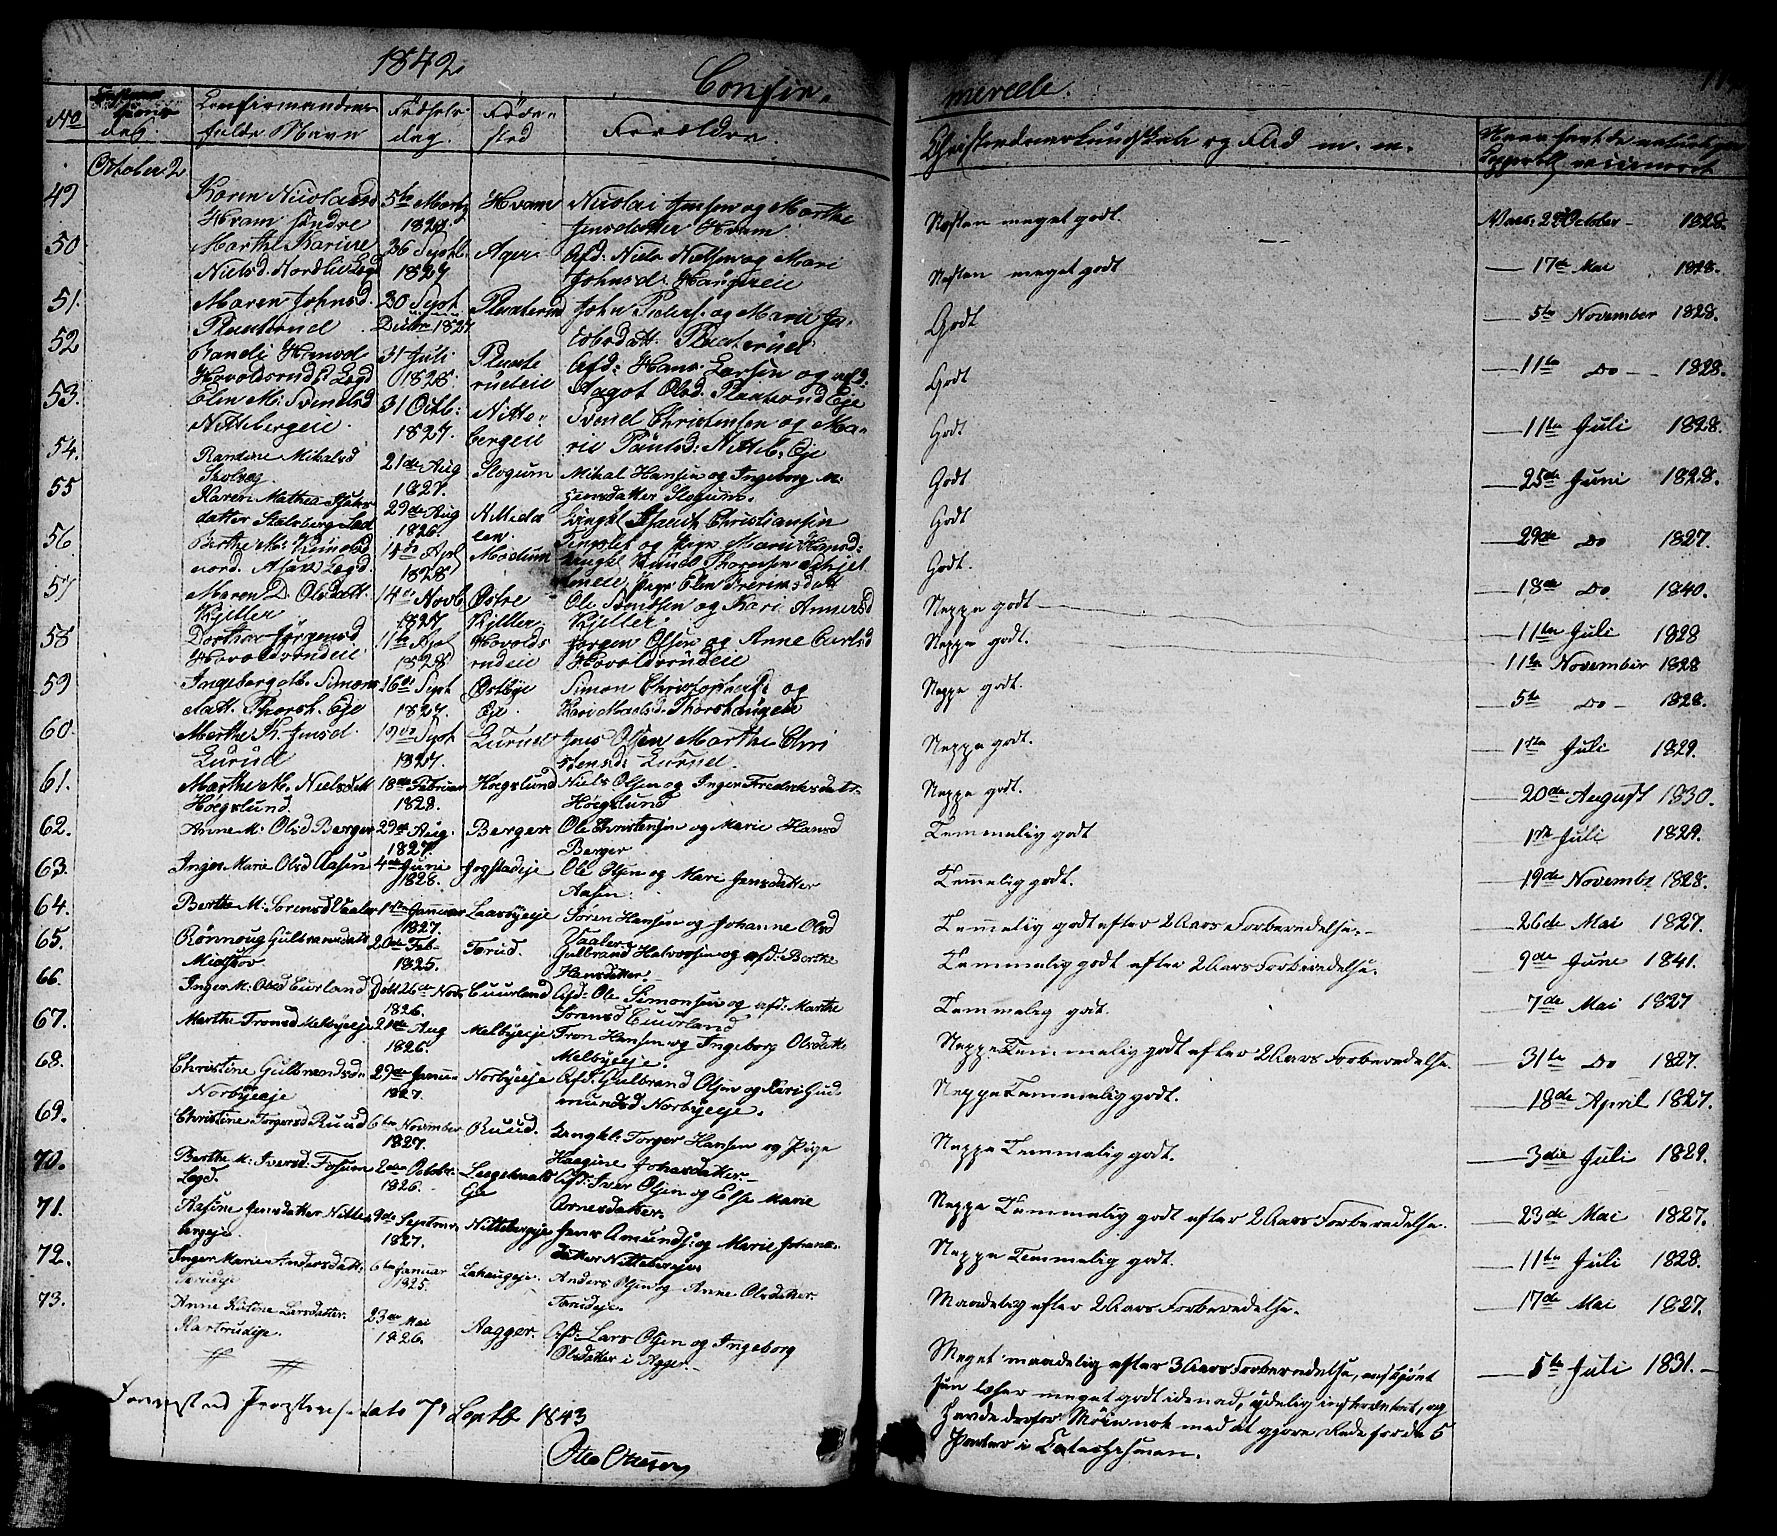 1842
Confir-
merede.
No
Confirmandens
fulde Navn
Fødsels-
dag.
Føde-
sted
Forældre.
Christendomskundskab og Flid m. m.
October 2
49
Karen Nicolaisd
Hvam søndre
5te Marts
1828.
Hvam
Nicolai Jensen og Marthe
Jensdatter Hvam
Næsten meget godt.
Vacc. 29 October 1828.
50
Marthe Karine
Nielsd. Nordlie Lægd
26 Septb.
1827
Ager
Afd. Niels Nielsen og Mari
Johnsd. Haugseie
Næsten meget godt
17de Mai 1828.
51.
Maren Johnsd.
Plaaterud
30 Sept
1827.
Plaaterud
John Peders. og Marie Ja-
cobsdatt. Plaaterud
Godt
5te November 1828.
52
Randi Hansd
Havoldsrud Lægd
31 Juli
1828.
Plaate
rudeie
Afd: Hans Larsen og afd:
Aagot Olsd. Plaaterud Eje
Godt
11te Do 1828.
53.
Elen M: Svendsd
Nittebergeie.
31 Octb:
1827.
Nitte-
bergeie
Svend Christensen og Ma-
rie Paulsd: Nitteb. Eje
Godt
11te Juli 1828.
54.
Randine Mikalsd
21de Aug
1827.
Slogum
Mikal Hansen og Ingeborg M:
Jensdatter Slogum.
Godt
25de Juni 1828.
55
Karen Mathea
datter Stalsberg
29de Aug
1826.
Christiansen
og Pige Mari Hansd:
Godt
29de Do 1827.
56.
Berthe M:
14de Apl
1828
Godt.
18de Do 1840.
57
Maren D. Olsdatt.
Kjeller
14de Novb.
1827
Østre
Kjeller
Ole Svendsen og Kari Andersd
Kjeller.
Neppe godt
11te Juli 1828
58
Dorthea Jørgensd
Havoldsrudeie
11te Apl
1828
Havolds
rudeie
Jørgen Olsen og Anne Carlsd
Havoldsrudeie
Neppe godt.
11te November 1828
59
Ingeborg Simons
datt. Thorsh. Eje
16de Sept
1827.
Østbye
Eje.
Simon Christophers. og
Thorshaugen
Neppe godt.
5te Do 1828.
60.
Marthe K. Jensd.
Lurud
19de Sept
1827
Lurud
Jens Olsen Marthe Chri
stensd: Lurud.
Neppe godt.
1ste Juli 1829.
61.
Marthe M. Nielsdatt
Høegslund.
18de Februar
1828.
Høegslund
Niels Olsen og Inger Frederiksdatt.
Høegslund
Neppe godt.
20de August 1830.
62.
Anne M: Olsd Berger
29de Aug.
1827.
Berger
Ole Christensen og Marie Hansd
Berger
Temmelig godt
1ste Juli 1829.
63.
Inger Marie Olsd Aasen
4de Juni
1828.
Jogstadeje
Ole Olsen og Mari Jensdatter
Aasen.
Temmelig godt.
19de Novembr 1828.
64.
Berthe M: Sørensd Vaaler
1ste Januar
1827.
Søren Hansen og Johanne Olsd
Vaaler
Temmelig godt efter 2 Aars Forberedelse.
26de Mai 1827.
65.
Rønnoug Gulbrandsdatt
Mieskov
20de Feb
1825.
Torud.
Gulbrand Halvorsen og afd: Berthe
Hansdatter
Temmelig godt efter 2 Aars Forberedelse.
9de June 1841.
66.
Inger M: Olsd Cuurland
Døbt 26de Nov.
1826.
Cuurland
Afd: Ole Simonsen og afd: Marthe
Sørensd Cuurland
Temmelig godt.
7de Mai 1827
67.
Marthe Tronsd Melbyeeje
21de Aug
1826.
Melbyeeje
Tron Hansen og Ingeborg Olsdatt.
Melbyeeje.
Neppe Temmelig godt efter 2 Aars Forberedelse.
31te Do 1827.
68.
Christine Gulbrandsd.
Norbyeeje
29de Janu-
1827.
Norbyeeje
Afd: Gulbrand Olsen og Kari Gud
mundsd Norbyeeje.
Neppe Temmelig godt.
18de April 1827.
69.
Christine Torgersd Ruud
6te November
1827.
Ruud.
Ungkl: Torger Hansen og Pige
Haagine Johansdatter.
Neppe Temmelig godt.
3die Juli 1829.
70.
Berthe M: Iversd: Fosum
Lægd.
2den Octobr.
1826.
Afd: Iver Olsen og Else Marie
Arnesdatter.
Neppe Temmelig godt efter 2 Aars Forberedelse.
23de Mai 1827.
71.
Rasine Jensdatter Nitte
bergeje.
9de Septembr
1827.
Nittebergeje
Jens Amunds: og Marie Johan-
datter Nittebergeje
Neppe Temmelig godt.
11te Juli 1828.
72.
Inger Marie Andersdatt:
Torudeje
6te Januar
1825.
Lahaugeje.
Anders Olsen og Anne Olsdatter
Torudeje.
Maadelig efter 2 Aars Forberedelse.
17de Mai 1827.
73.
Anne Karine Larsdatter.
23de Mai
1826.
Aagger.
Afd: Lars Olsen og Ingeborg
Olsdatter i Agger.
Meget maadelig efter 3 Aars Forberedelse, endskjønt
hun læser meget godt
havde derfor Møie nok med at gjøre Rede for de 5
Parter i Catechismen.
5te Juli 1831.
7de Septb 1843